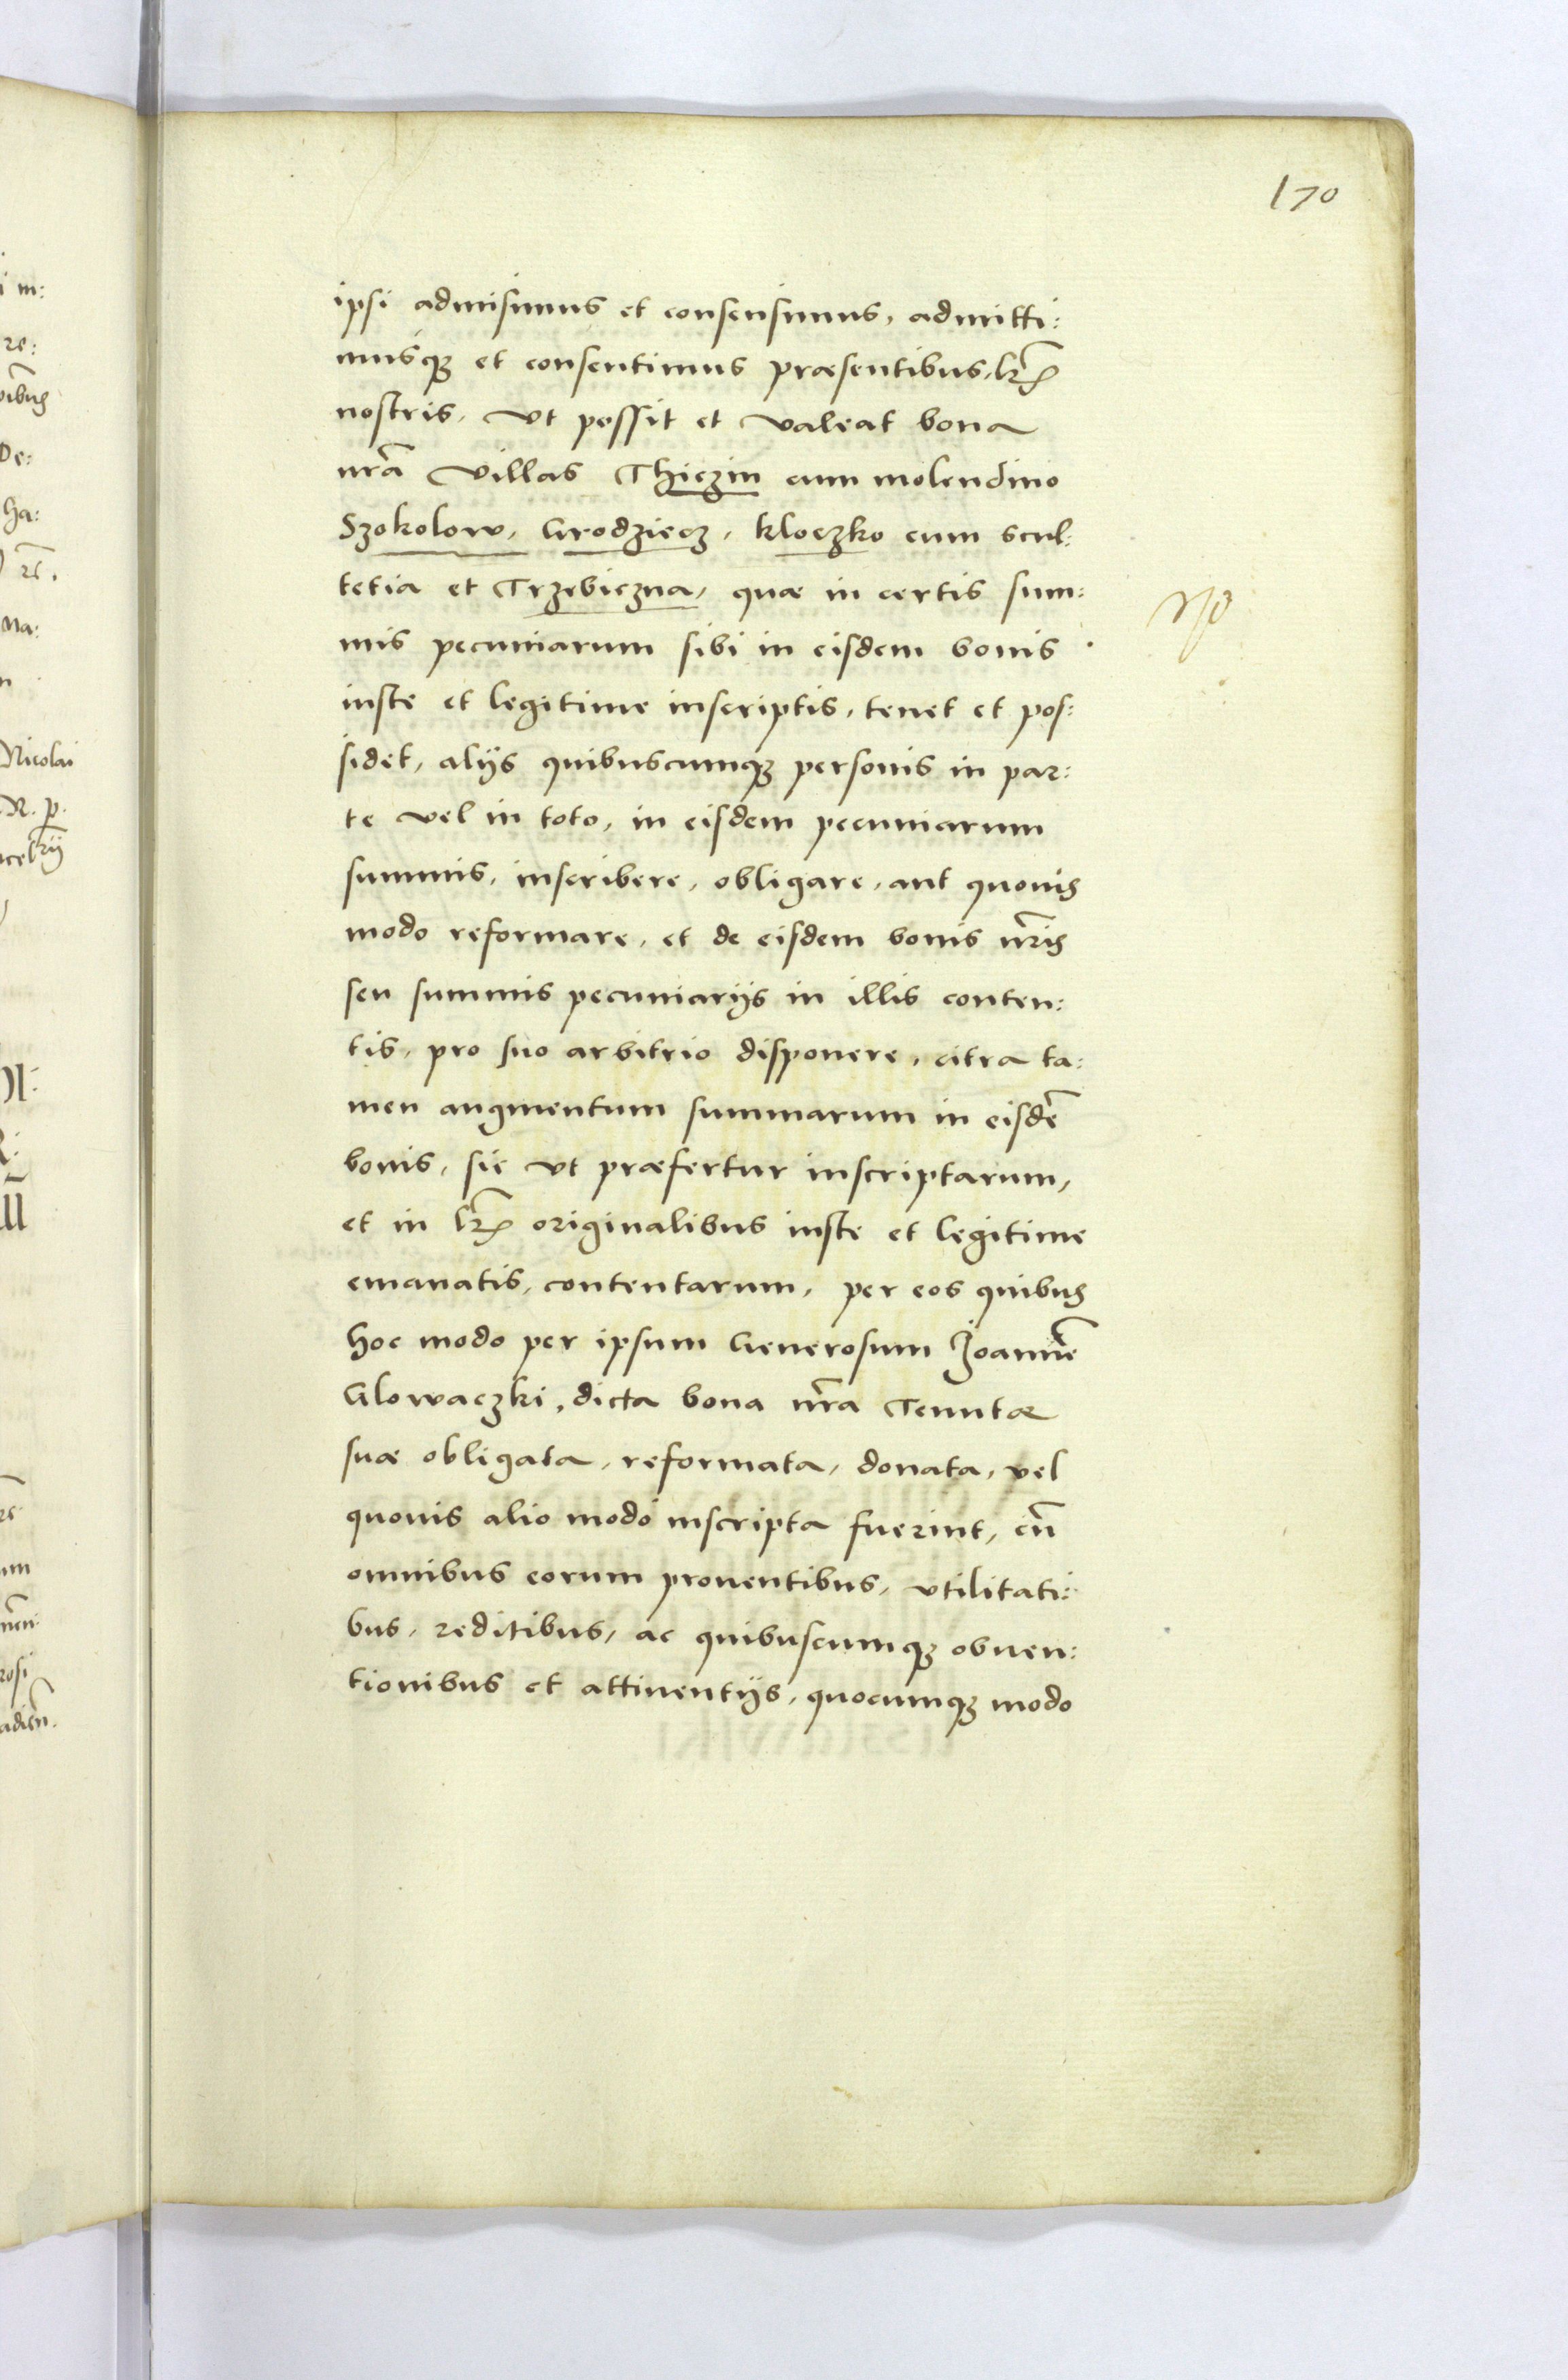 170
ipsi admisimus et consensimus, admitti:
musq[ue] et consentimus præsentibus, lr̃is
nostris, vt possit et valeat bona
nr̃a villas Thiczin cum molendino
Szokolow, Grodziecz, Kloczko cum scul:
tetia et Trzebiczna, quæ in certis sum:
mis pecuniarum sibi in eisdem bonis
iuste et legitime inscriptis, tenet et pos:
sidet, alijs quibuscumq[ue] personis in par:
te vel in toto, in eisdem pecuniarum
summis, inscribere, obligare, aut quouis
modo reformare, et de eisdem bonis nr̃is
seu summis pecuniarijs in illis conten:
tis, pro suo arbitrio disponere, citra ta:
men augmentum summarum in eisdẽ
bonis, sic vt præfertur inscriptarum,
et in lr̃is originalibus iuste et legitime
emanatis, contentarum, per eos quibus
hoc modo per ipsum Generosum Joannẽ
Glowaczki, dicta bona nr̃a Tenutæ
suæ obligata, reformata, donata, vel
quouis alio modo inscripta fuerint, cũ
omnibus eorum prouentibus, vtilitati:
bus, reditibus, ac quibuscumq[ue] obuen:
tionibus et attinentijs, quocumq[ue] modo